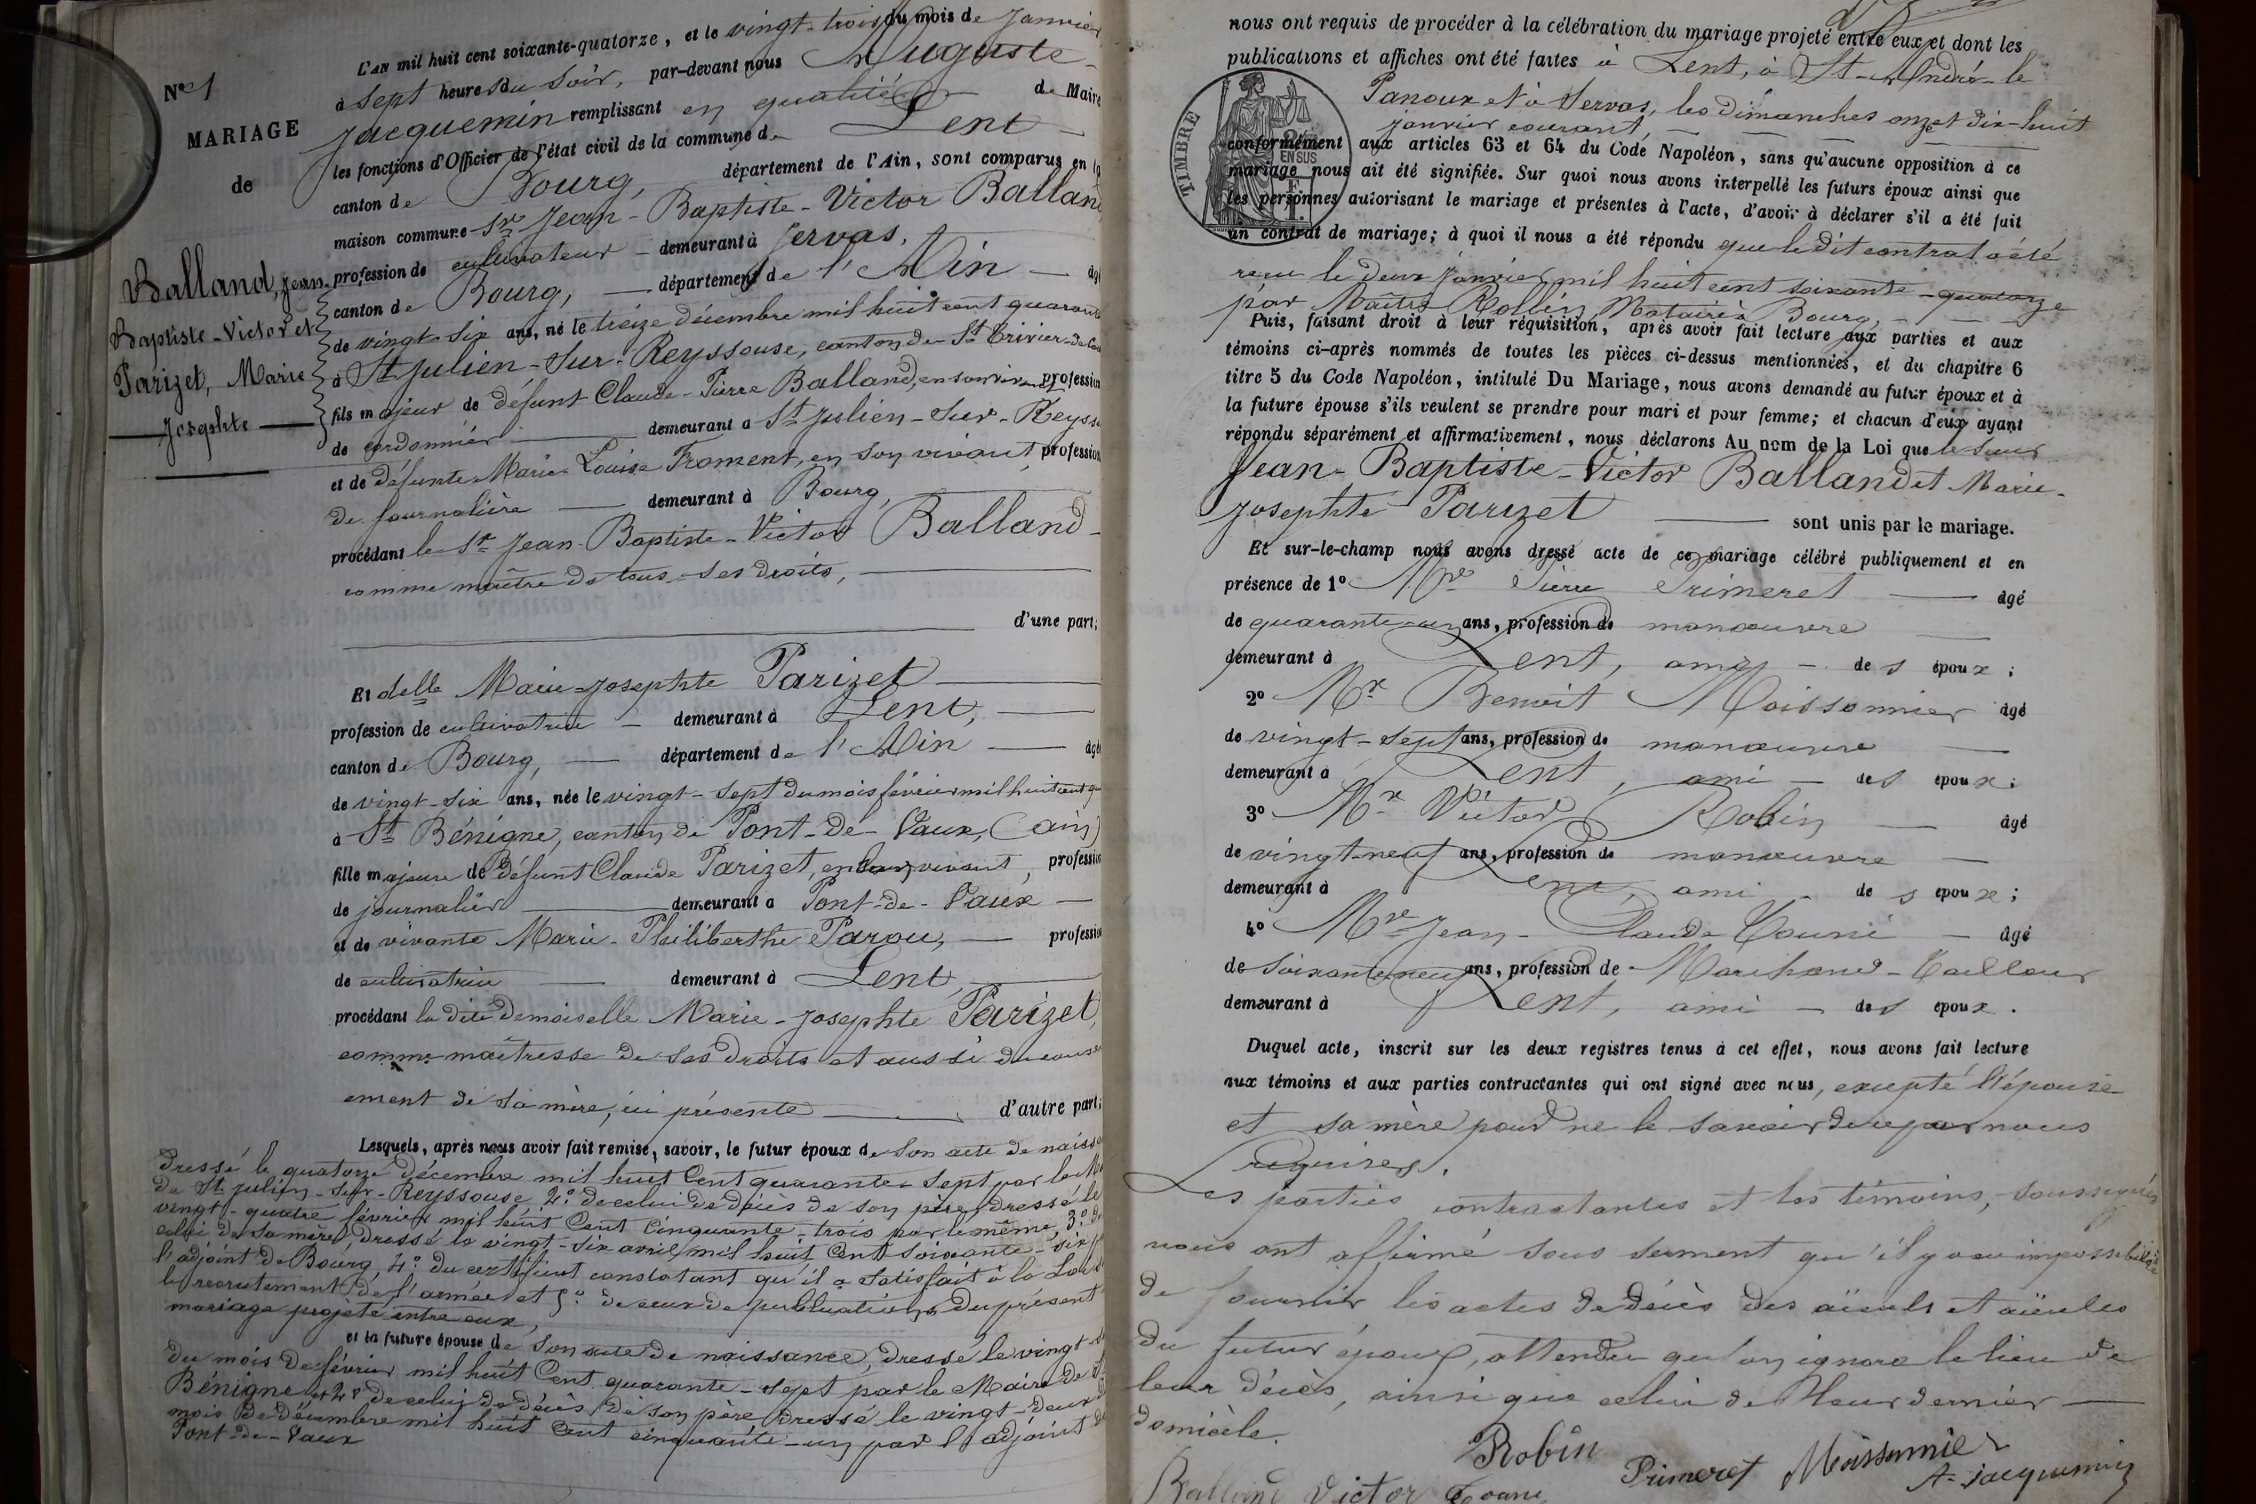 N° 1
MARIAGE
de
Balland, Jean-
Baptiste-Victor et
Parizet, Marie
Josephte
L'AN mil huit cent soixante-quatorze, et le vingt-trois du mois de Janvier
à sept heures du soir, par-devant nous Auguste
Jacquemin remplissant en qualité de Maire
les fonctions d'Officier de l'état civil de la commune de Lent
canton de Bourg, département de l'Ain, sont comparus en la
maison commune Sr Jean-Baptiste-Victor Balland
profession de cultivateur demeurant à Servas,
canton de Bourg, département de l'Ain âgé
de vingt-six ans, né le treize décembre mil huit cent quarante
à St Julien-sur-Reyssouse, canton de St Trivier-de-Cou
fils majeur de défunt Claude-Pierre Balland, en son vivant, profession
de cordonnier demeurant à St Julien-sur-Reysso
et de défunte Marie Louise Froment, en son vivant, profession
de journalière demeurant à Bourg,
procédant le Sr Jean-Baptiste-Victor Balland
comme maître de tous ses droits,
d'une part;
Et delle Marie-Josephte Parizet
profession de cultivatrice demeurant à Lent,
canton de Bourg, département de l'Ain âgée
de vingt-six ans, née le vingt-sept du mois février mil huit cent qua
à St Bénigne, canton de Pont-de-Vaux, (Ain)
fille majeure de défunt Claude Parizet, en son vivant, profession
de journalier demeurant à Pont-de-Vaux
et de vivante Marie-Philiberthe Parou, profession
de cultivatrice demeurant à Lent,
procédant la dite demoiselle Marie-Josephte Parizet,
comme maîtresse de ses droits et aussi du consen
ement de sa mère, ici présente d'autre part;
Lesquels, après nous avoir fait remise, savoir, le futur époux de son acte de naiss
dressé le quatorze décembre mil huit cent quarante-sept par le M
de St Julien-sur-Reyssouse, 2° de celui de décès de son père, dressé le
vingt-quatre février mil huit cent cinquante-trois par le même, 3° de
celui de sa mère, dressé le vingt-six avril mil huit cent soixante-six p
l'adjoint de Bourg, 4° du certificat constatant qu'il a satisfait à la Loi
le recrutement de l'armée et 5° de ceux de publications du présent
mariage projeté entre eux,
et la future épouse de son acte de naissance, dressé le vingt-
du mois de février mil huit cent quarante-sept par le Maire de St
Bénigne et 2° de celui de décès de son père dressé le vingt-deux
mois de décembre mil huit cent cinquante-un par l'adjoint de
Pont-de-Vaux
nous ont requis de procéder à la célébration du mariage projeté entre eux et dont les
publications et affiches ont été faites à Lent, à St-André-le
Panoux et à Servas, les dimanches onze et dix-huit
janvier courant,
TIMBRE
EN SUS
conformément aux articles 63 et 64 du Code Napoléon, sans qu'aucune opposition à ce
mariage nous ait été signifiée. Sur quoi nous avons interpellé les futurs époux ainsi que
les personnes autorisant le mariage et présentes à l'acte, d'avoir à déclarer s'il a été fait
un contrat de mariage; à quoi il nous a été répondu que le dit contrat a été
reçu le deux janvier mil huit cent soixante-quatorze
par Maître Rollin, Notaire à Bourg,
Puis, faisant droit à leur réquisition, après avoir fait lecture aux parties et aux
témoins ci-après nommés de toutes les pièces ci-dessus mentionnées, et du chapitre 6
titre 5 du Code Napoléon, intitulé Du Mariage, nous avons demandé au futur époux et à
la future épouse s'ils veulent se prendre pour mari et pour femme; et chacun d'eux ayant
répondu séparément et affirmativement, nous déclarons Au nom de la Loi que le sieur
Jean-Baptiste-Victor Balland et Marie-
Josephte Parizet sont unis par le mariage.
Et sur-le-champ nous avons dressé acte de ce mariage célébré publiquement et en
présence de 1° Mre Pierre Primeret âgé
de quarante-un ans, profession de manœuvre
demeurant à Lent, ami des époux;
2° Mr Benoit Moissonnier âgé
de vingt-sept ans, profession de manœuvre
demeurant à Lent, ami des époux;
3° Mr Victor Robin âgé
de vingt-neuf ans, profession de manœuvre
demeurant à Lent, ami des époux;
4° Mre Jean-Claude Couni âgé
de soixante-neuf ans, profession de Marchand-Tailleur
demeurant à Lent, ami des époux.
Duquel acte, inscrit sur les deux registres tenus à cet effet, nous avons fait lecture
aux témoins et aux parties contractantes qui ont signé avec nous, excepté l'épouse
et sa mère pour ne le savoir de ce par nous
requises.
Les parties contractantes et les témoins, soussignés
nous ont affirmé sous serment qu'il y a eu impossibilité
de fournir les actes de décès des aïeuls et aïeules
du futur époux, attendu qu'on ignore le lieu de
leur décès, ainsi que celui de leur dernier
domicile.
Robin
Primeret Moissonnier
A. Jacquemin
Balland Victor